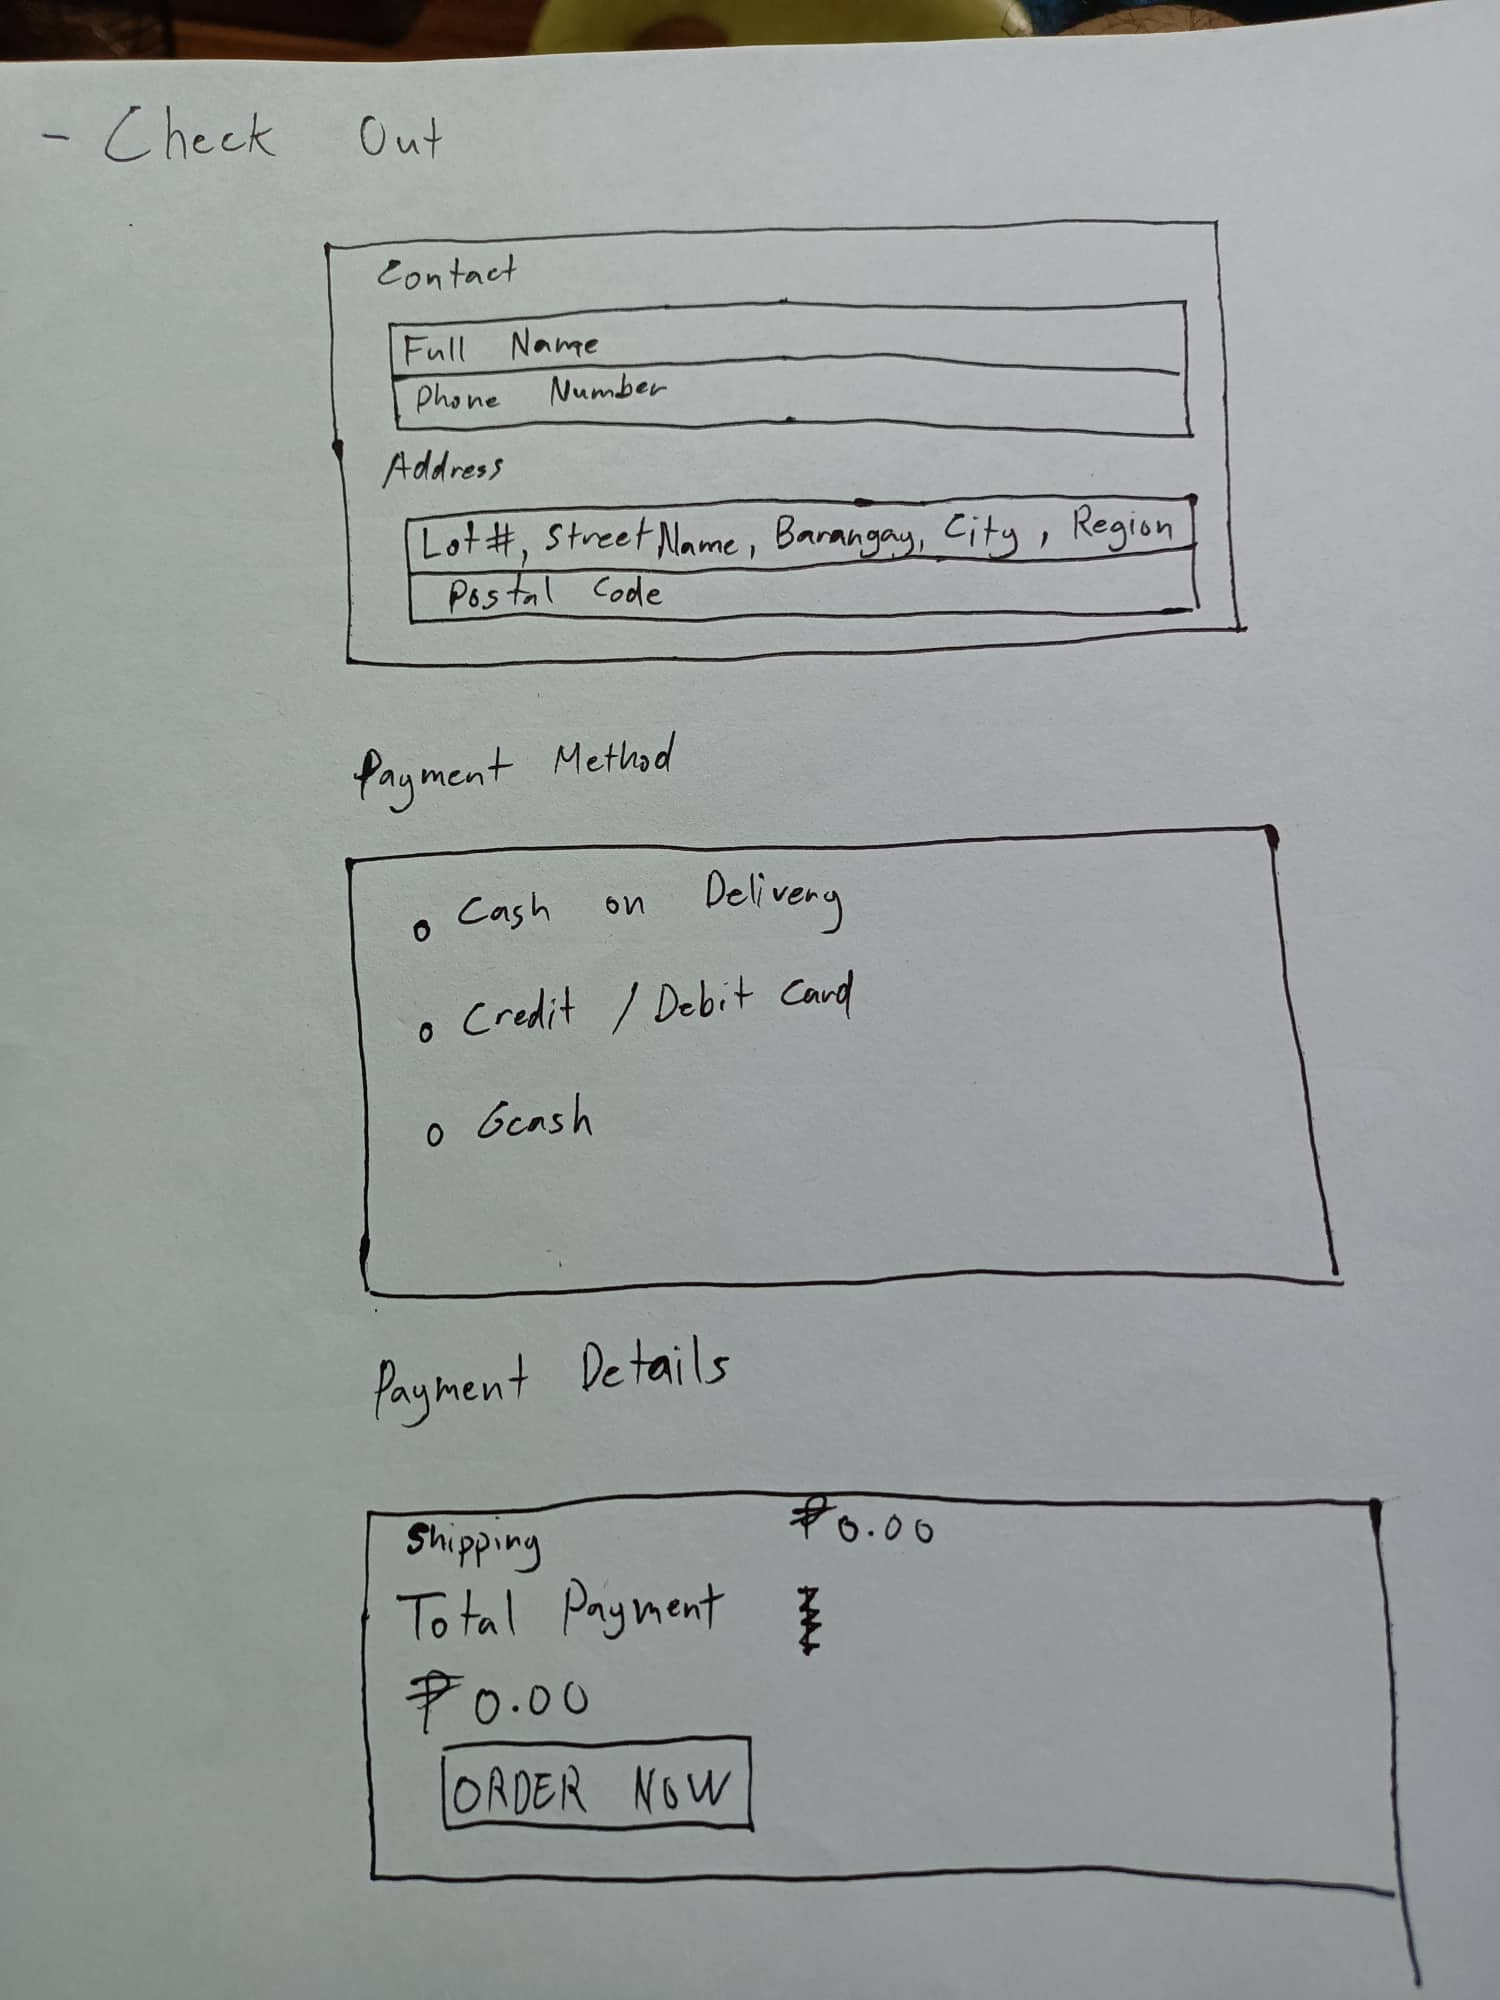 - Check Out
Contact
Full Name
Phone Number
Address
Lot#, Street Name, Barangay, City, Region
Postal Code
Payment Method
Cash on Delivery
Credit / Debit Card
Gcash
Payment Details
Shipping ₱0.00
Total Payment
₱0.00
ORDER NOW